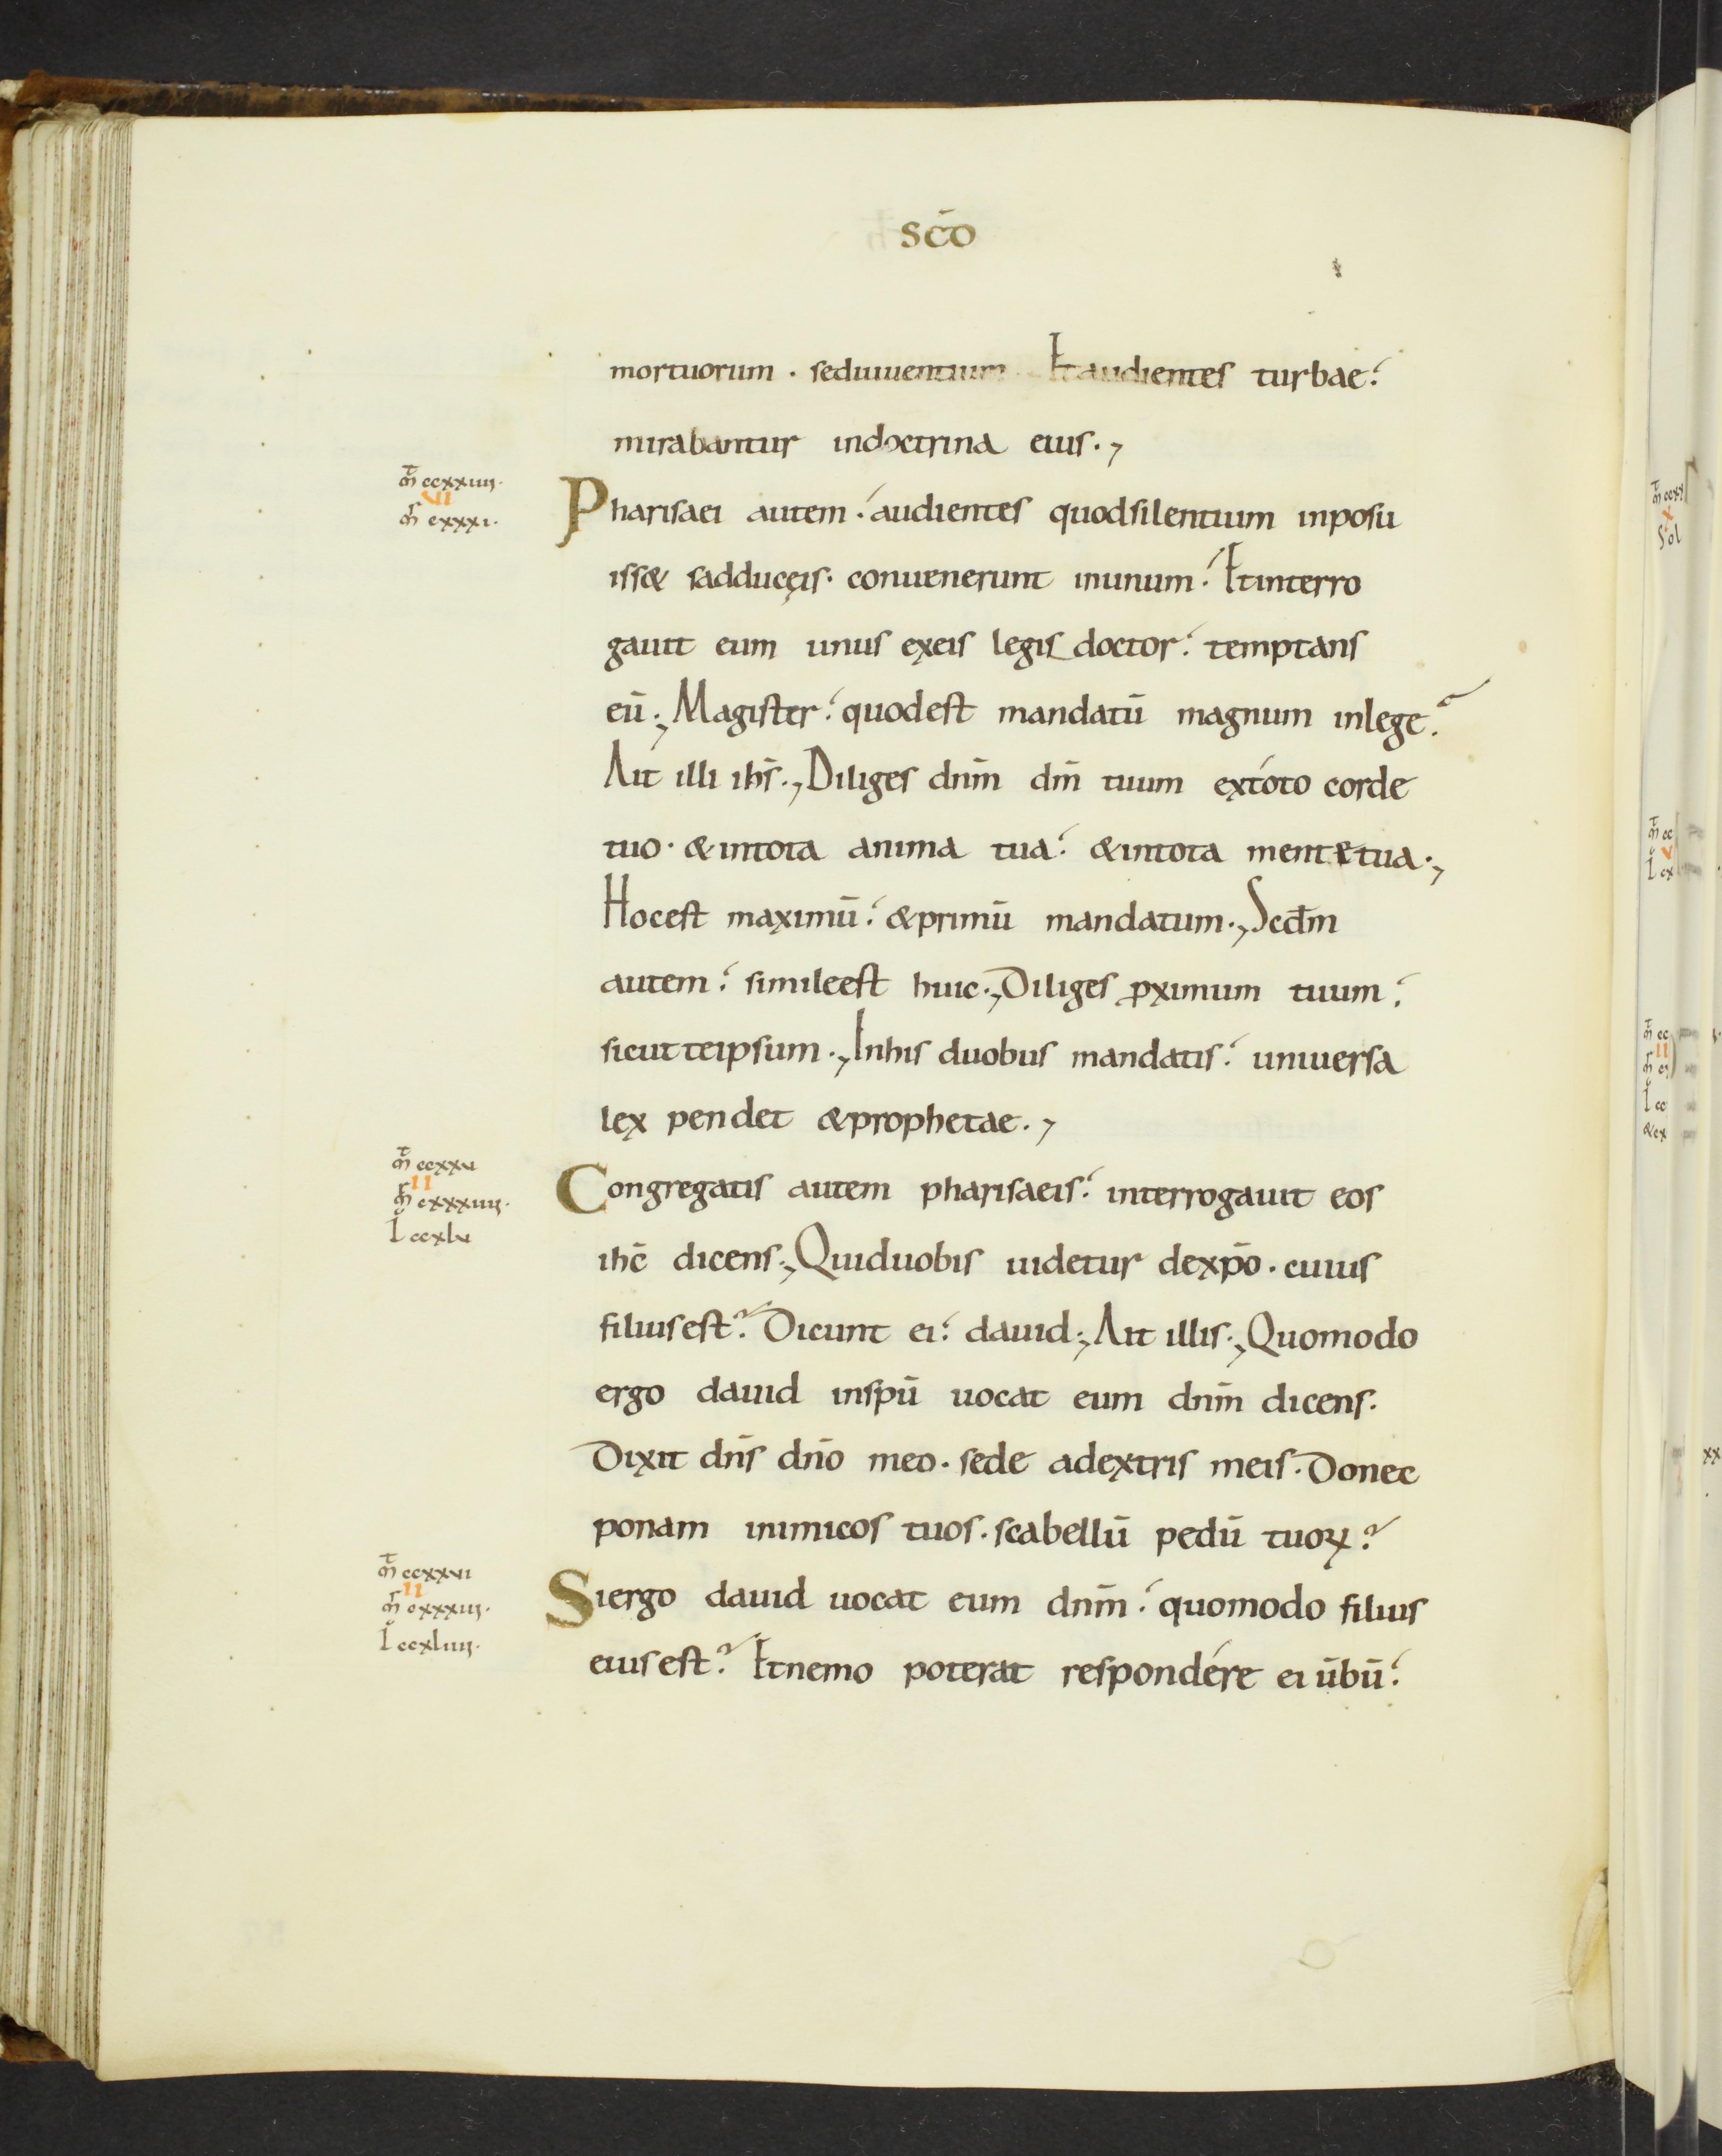 sc̄o
mortuorum · seduiuentium Et audientes turbae
mirabantur indoctrina eius ·,
m̄ ccxxiiii·
VI
m̄ cxxxi·
Pharisaei autem · audientes quodsilentium inposu
iss& sadducęis · conuenerunt inunum Etinterro
gauit eum unus exeis legis doctor temptans
eū ·, Magister quodest mandatū magnum inlege?
Ait illi ihs̄ ·, Diliges dnm̄ dm̄ tuum extóto corde
tuo · &intota anima tua &intota mente tua ·,
Hocest maximū &primū mandatum ·, Scdm̄
autem simileest huic ·, Diliges ꝓximum tuum
sicut teipsum ·, Inhis duobus mandatis uniuersa
lex pendet &prophetae ·,
m̄ ccxxv
II
m̄ cxxxiiii·
L ccxlv
Congregatis autem pharisaeis interrogauit eos
ihc̄ dicens ·, Quiduobis uidetur dexpō · cuius
filius est? Dicunt ei dauid ·, Ait illis ·, Quomodo
ergo dauid inspū uocat eum dnm̄ dicens ·
Dixit dns̄ dnō meo · sede adextris meis · Donec
ponam inimicos tuos · scabellū pedū tuoꝝ?
m̄ ccxxvi
II
m̄ cxxxiii·
L ccxliiii·
Siergo dauid uocat eum dnm̄ quomodo filius
eius est? Etnemo poterat respondére ei ūbū